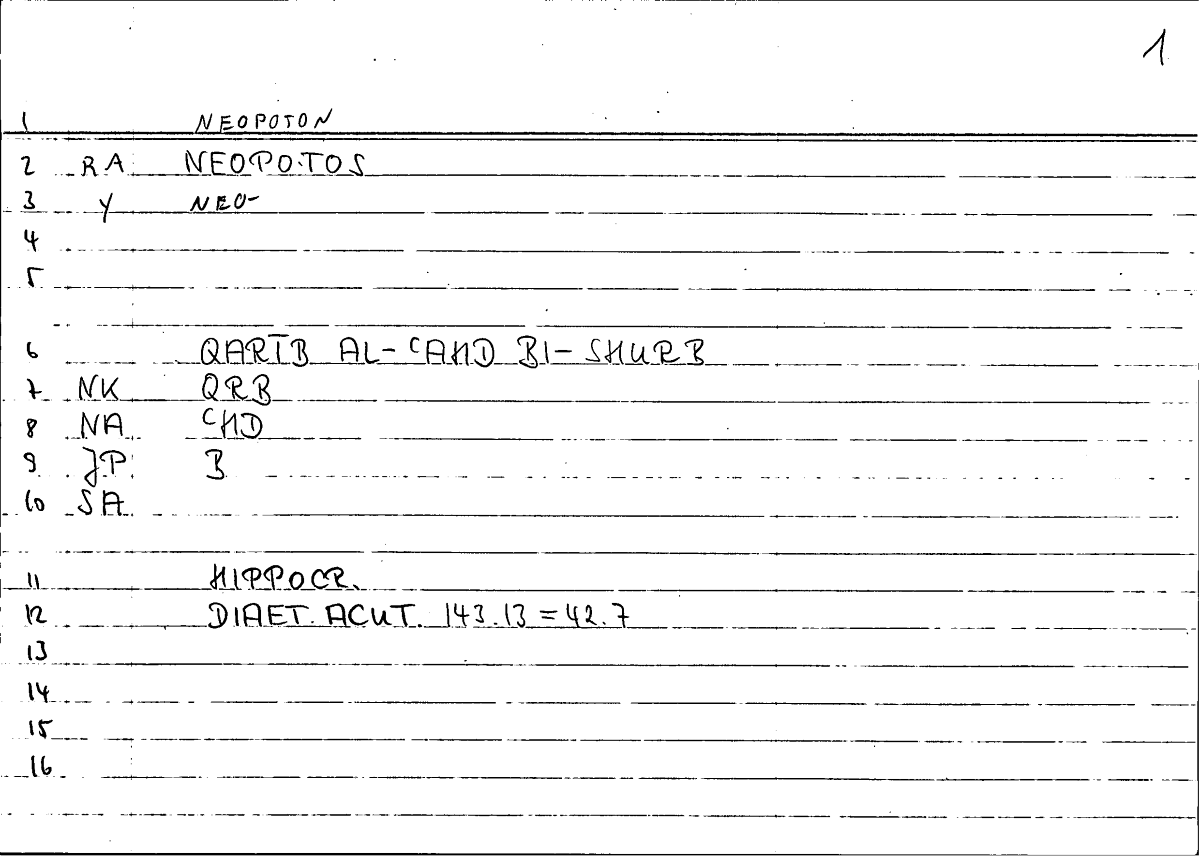 1
1 NEOPOTON
2 RA NEOPOTOS
3 Y NEO-
4
5
6 QARĪB AL-ʿAHD BI-SHURB
7 NK QRB
8 NA ʿHD
9 JP B
10 SA
11 HIPPOCR.
12 DIAET. ACUT. 143.13 = 42.7
13
14
15
16